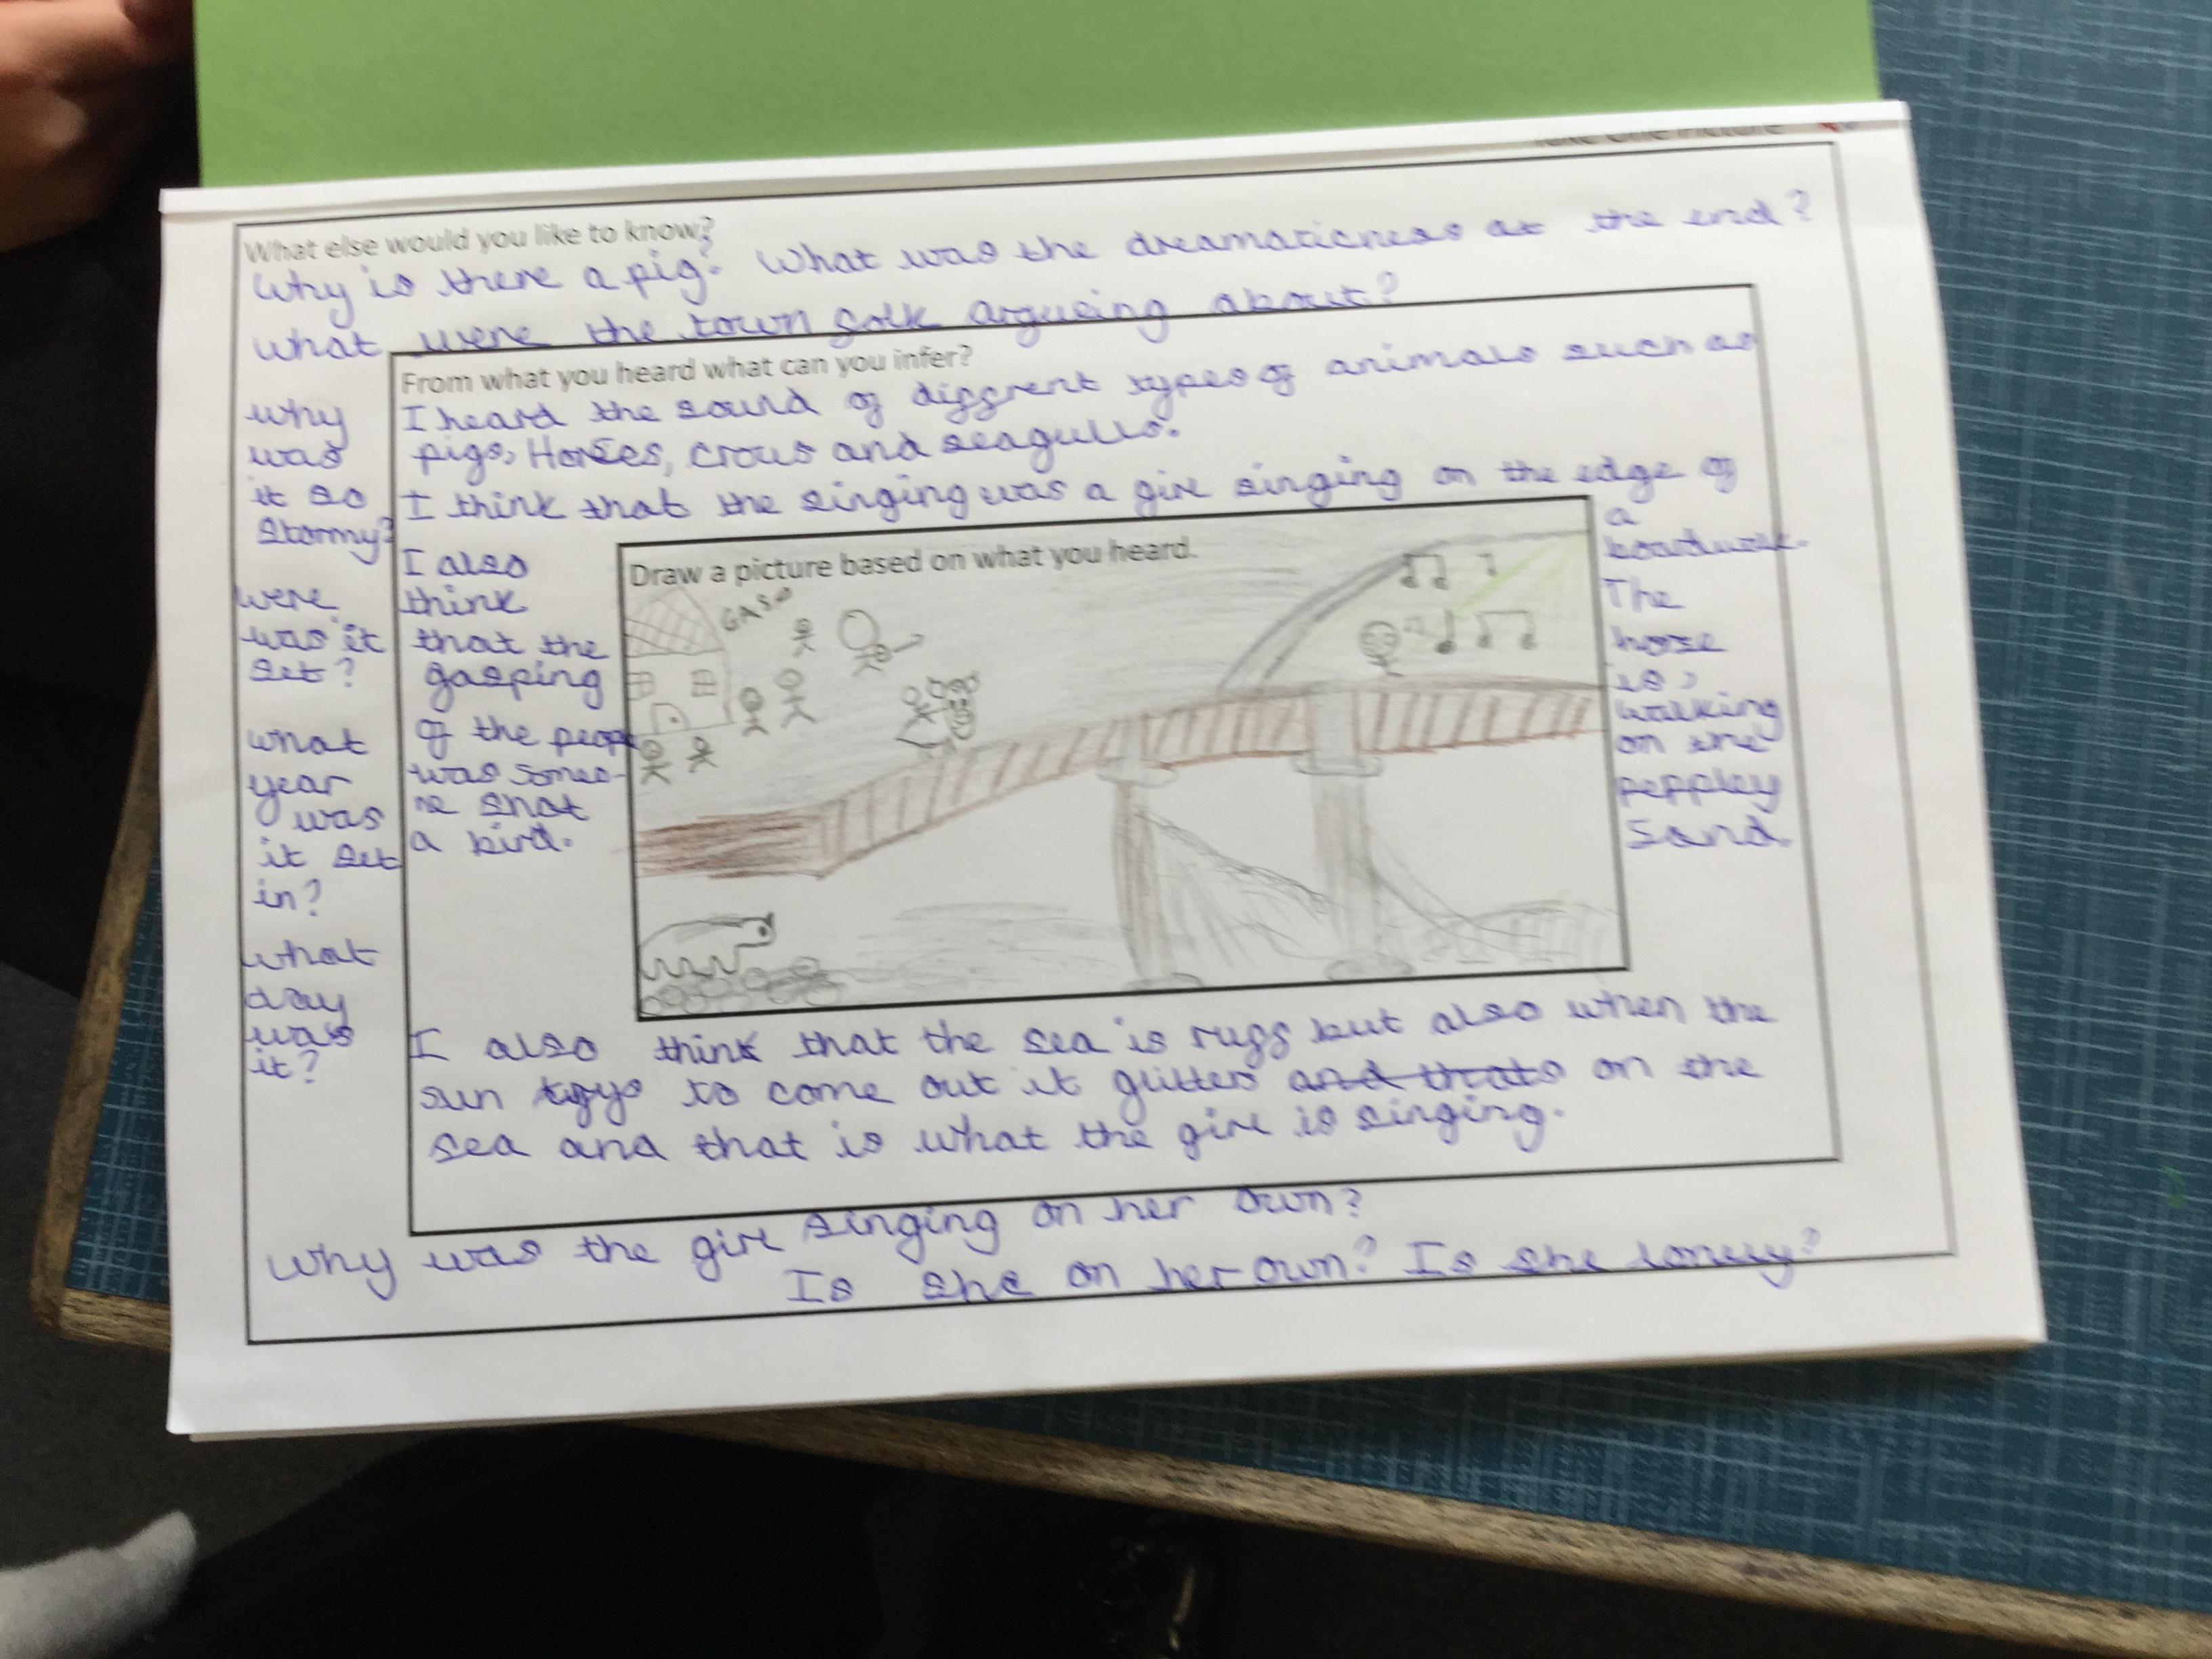 Take One Picture
What else would you like to know?
Why is there a pig? What was the dreamaticness at the end?
What were the town folk argueing about?
why
was
it so
stormy?
were
was it
set?
what
year
was
it set
in?
what
day
was
it?
Why was the girl singing on her own?
Is she on her own? Is she lonely?
From what you heard what can you infer?
I heard the sound of diffrent types of animals such as
pigs, Horses, crows and seagulls.
I think that the singing was a girl singing on the edge of
a
boardwalk.
The
horse
is
walking
on the
peppley
sand.
I also
think
that the
gasping
of the people
was someo-
ne shot
a bird.
I also think that the sea is ruff but also when the
sun trys to come out it glitters and thats on the
sea and that is what the girl is singing.
Draw a picture based on what you heard.
GASP